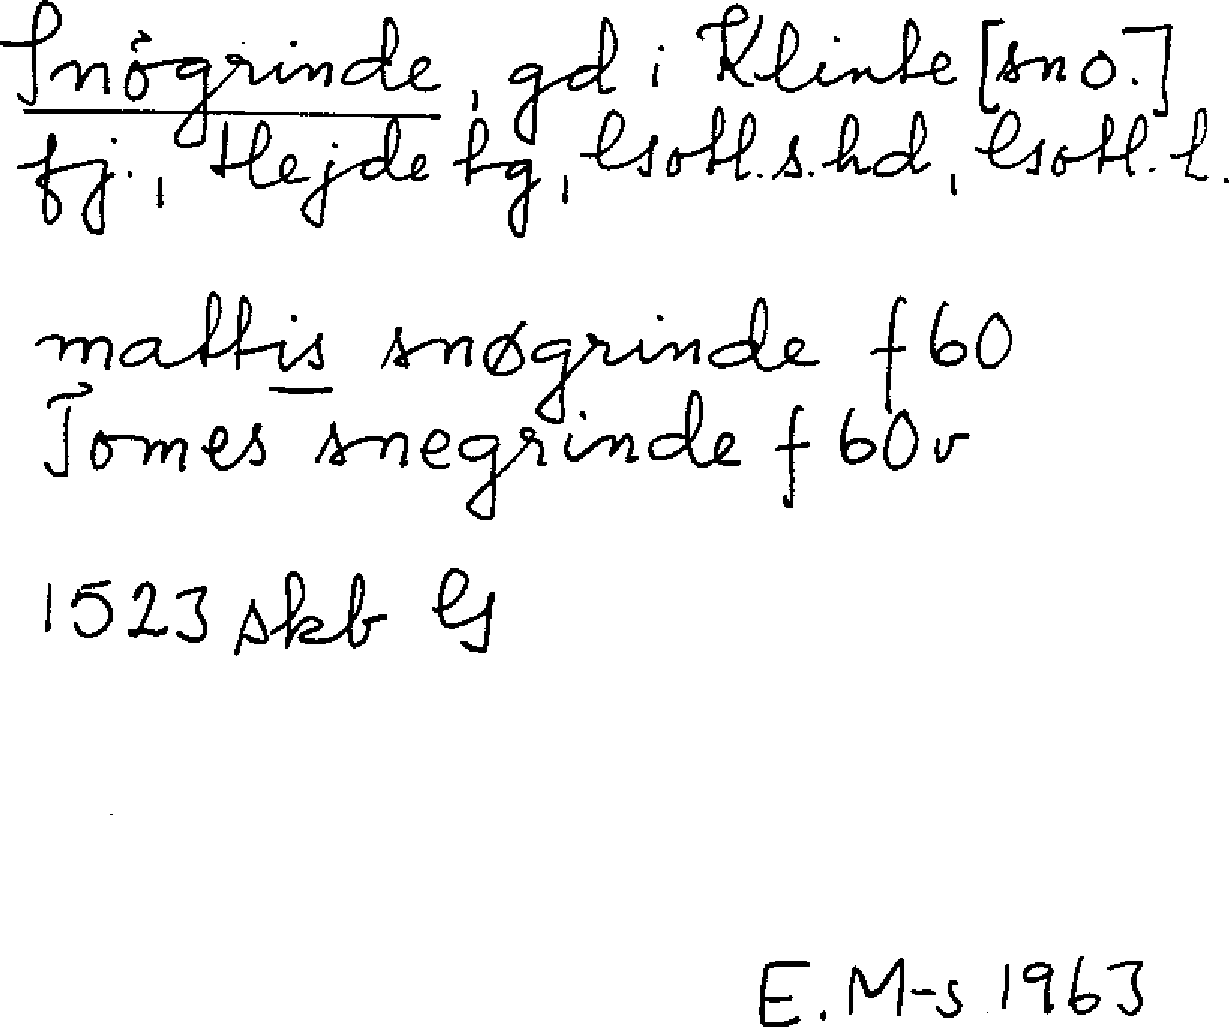 Snögrinde, gd i Klinte [sno.]
fj., Hejde tg, Gotl.s.hd, Gotl. l.
mattis snøgrinde f 60
Tomes snegrinde f 60v
1523 skb G
E. M-s 1963